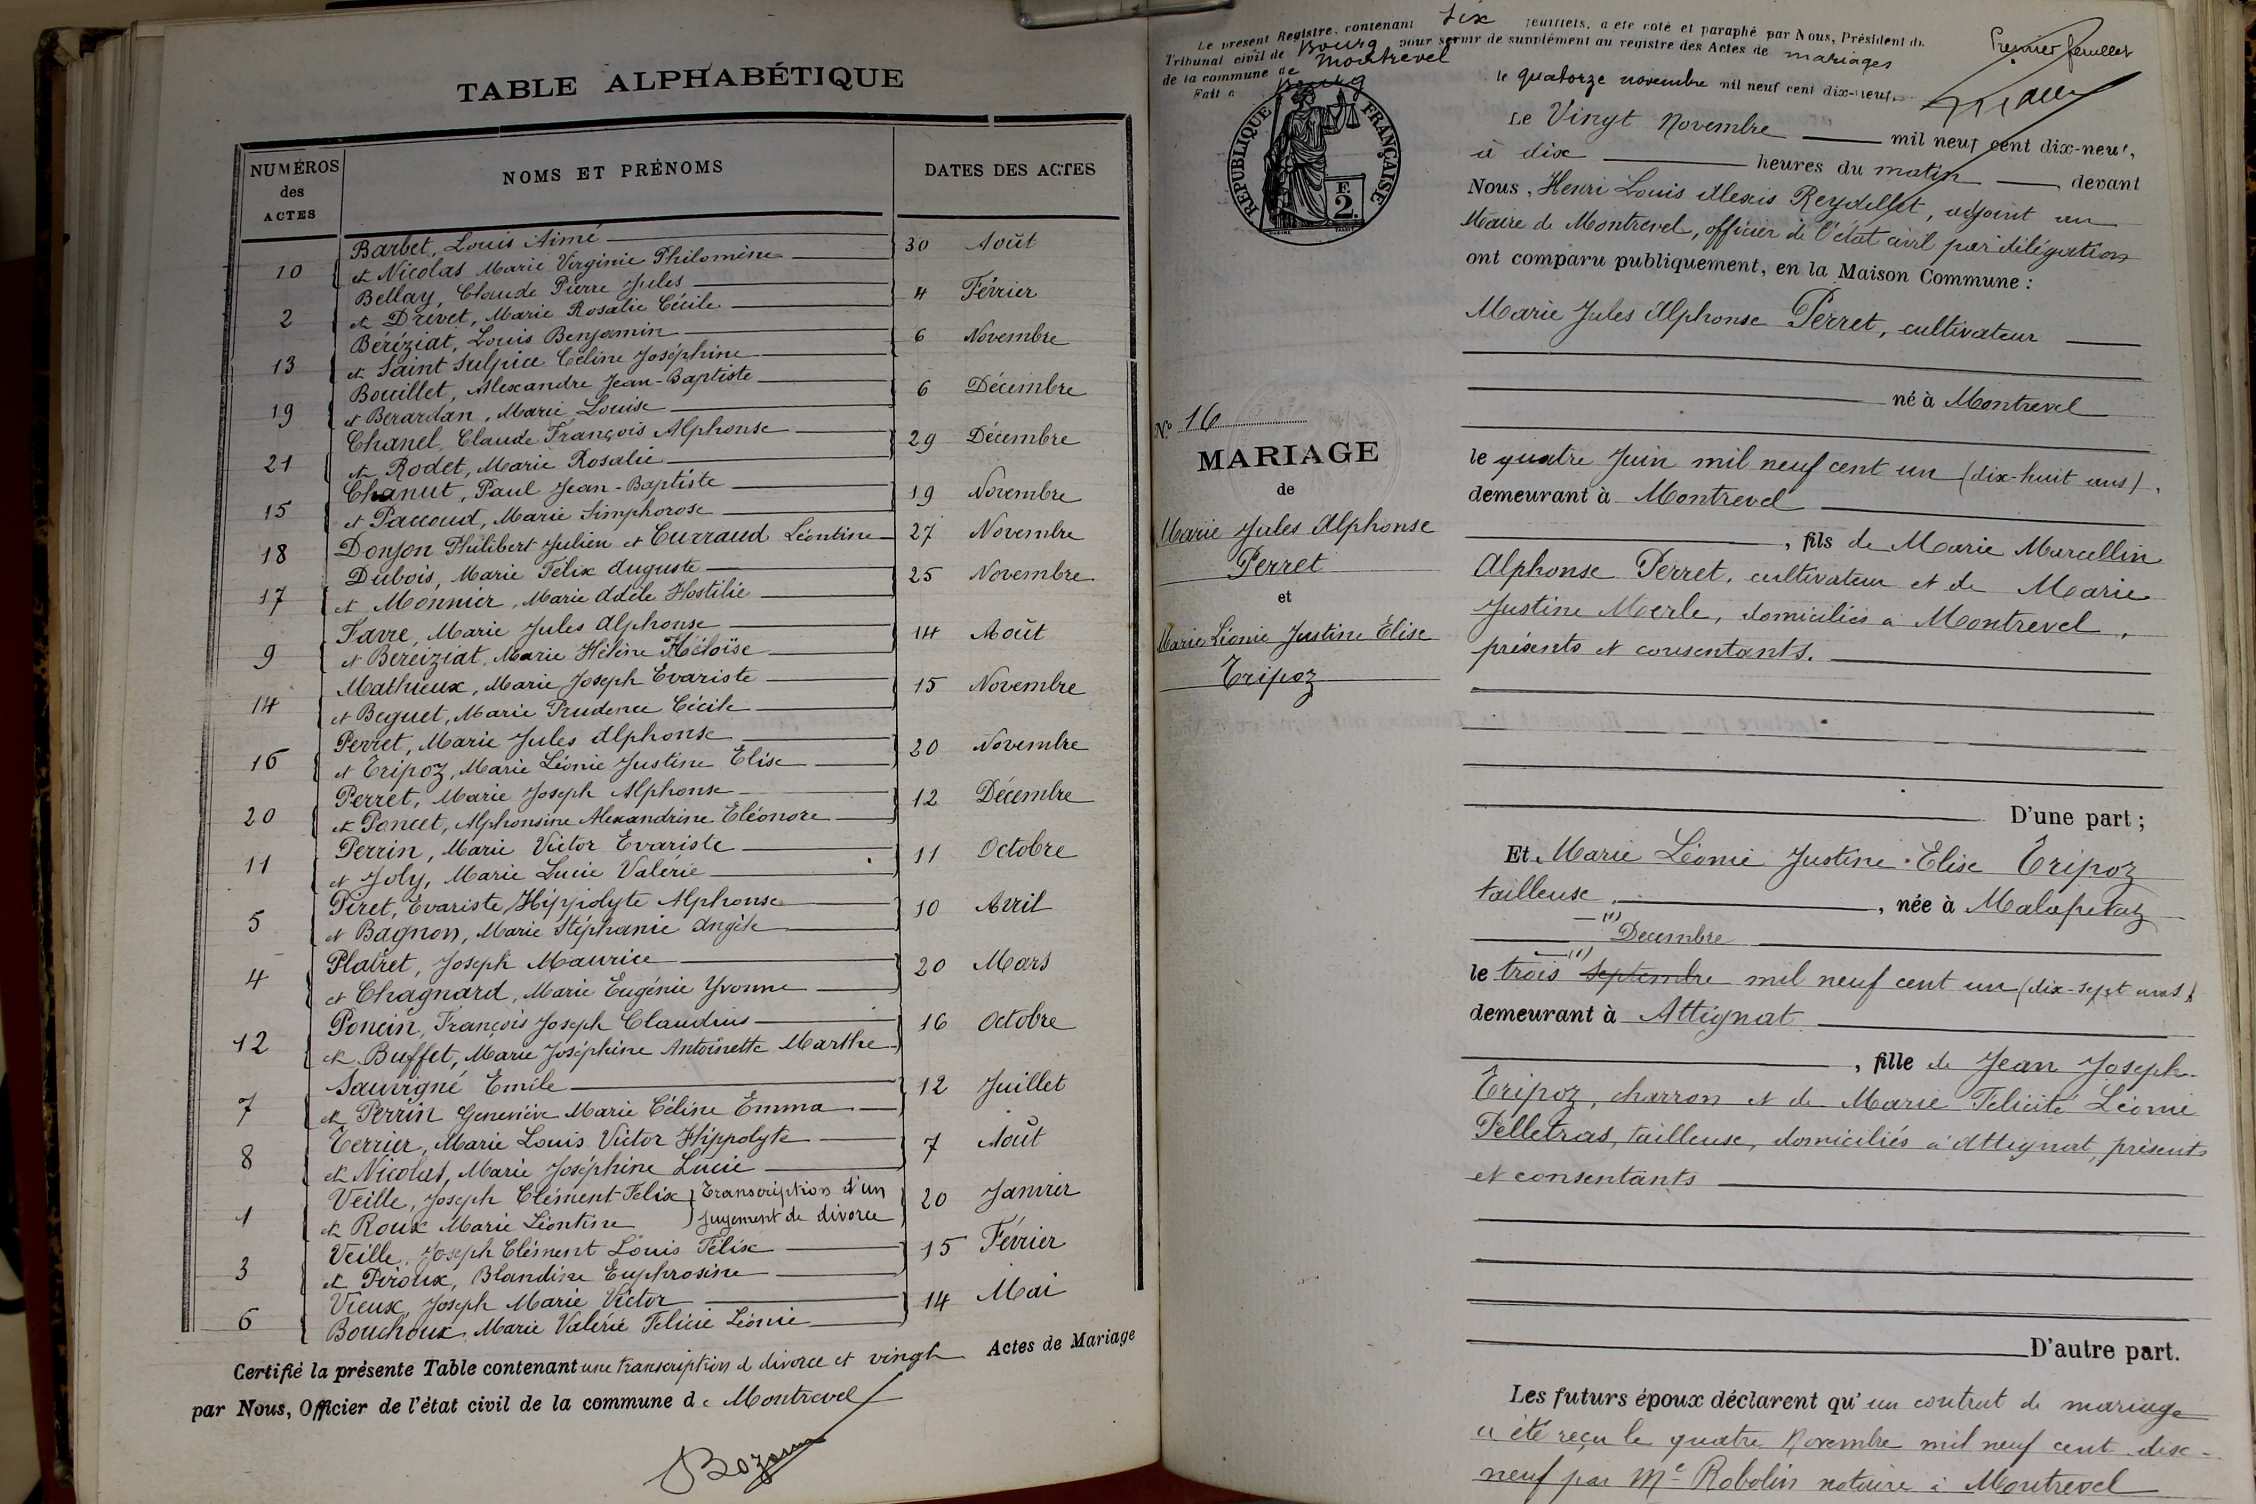 TABLE ALPHABÉTIQUE
NUMÉROS des ACTES
NOMS ET PRÉNOMS
DATES DES ACTES
Barbet, Louis Aimé
10 et Nicolas Marie Virginie Philomène 30 Août
Bellay, Claude Pierre Jules
2 et Drevet, Marie Rosalie Cécile 4 Février
Béréziat, Louis Benjamin
13 et Saint Sulpice Céline Joséphine 6 Novembre
Bouillet, Alexandre Jean-Baptiste
19 et Berardan, Marie Louise 6 Décembre
Chanel, Claude François Alphonse
21 et Rodet, Marie Rosalie 29 Décembre
Chanut, Paul Jean-Baptiste
15 et Paccoud, Marie Simphorose 19 Novembre
18 Donjon Philibert Julien et Curraud Léontine 27 Novembre
Dubois, Marie Félix Auguste
17 et Monnier, Marie Adèle Hostilie 25 Novembre
Favre, Marie Jules Alphonse
9 et Béreiziat, Marie Hélène Héloïse 14 Août
Mathieux, Marie Joseph Evariste
14 et Beguet, Marie Prudence Cécile 15 Novembre
Perret, Marie Jules Alphonse
16 et Tripoz, Marie Léonie Justine Elise 20 Novembre
Perret, Marie Joseph Alphonse
20 et Poncet, Alphonsine Alexandrine Eléonore 12 Décembre
Perrin, Marie Victor Evariste
11 et Joly, Marie Lucie Valérie 11 Octobre
Piret, Evariste Hippolyte Alphonse
5 et Bagnon, Marie Stéphanie Angèle 10 Avril
Platret, Joseph Maurice
4 et Chagnard, Marie Eugénie Yvonne 20 Mars
Poncin, François Joseph Claudius
12 et Buffet, Marie Joséphine Antoinette Marthe 16 Octobre
Sauvigné Emile
7 et Perrin Geneviève Marie Céline Emma 12 Juillet
Terrier, Marie Louis Victor Hippolyte
8 et Nicolas, Marie Joséphine Lucie 7 Août
Veille, Joseph Clément Felix Transcription d'un
1 et Roux Marie Léontine jugement de divorce 20 Janvier
Veille, Joseph Clément Louis Félix
3 et Piroux, Blandine Euphrosine 15 Février
Vieux, Joseph Marie Victor
6 Bouchoux, Marie Valérie Felicie Léonie 14 Mai
Certifié la présente Table contenant une transcription d divorce et vingt Actes de Mariage
par Nous, Officier de l'état civil de la commune de Montrevel
Le présent Registre, contenant six feuillets, a été coté et paraphé par Nous, Président du
Tribunal civil de Bourg pour servir de supplément au registre des Actes de mariages
de la commune de Montrevel
Fait à Bourg le quatorze novembre mil neuf cent dix-neuf
Premier feuillet
RÉPUBLIQUE FRANÇAISE
F. 2.
N° 16
MARIAGE
de
Marie Jules Alphonse
Perret
et
Marie Léonie Justine Elise
Tripoz
Le Vingt Novembre mil neuf cent dix-neuf,
à dix heures du matin devant
Nous, Henri Louis Alexis Reydellet, adjoint au
Maire de Montrevel, officier de l'état civil par délégation
ont comparu publiquement, en la Maison Commune :
Marie Jules Alphonse Perret, cultivateur
né à Montrevel
le quatre Juin mil neuf cent un (dix-huit ans),
demeurant à Montrevel
, fils de Marie Marcellin
Alphonse Perret, cultivateur et de Marie
Justine Merle, domiciliés à Montrevel,
présents et consentants.
D'une part ;
Et Marie Léonie Justine Elise Tripoz
tailleuse, née à Malafretaz
(1) Decembre
(1)
le trois septembre mil neuf cent un (dix-sept ans)
demeurant à Attignat
, fille de Jean Joseph
Tripoz, charron et de Marie Felicité Léonie
Pelletras, tailleuse, domiciliés à Attignat, présents
et consentants
D'autre part.
Les futurs époux déclarent qu'un contrat de mariage
a été reçu le quatre Novembre mil neuf cent dix-
neuf par Me Robolin notaire à Montrevel